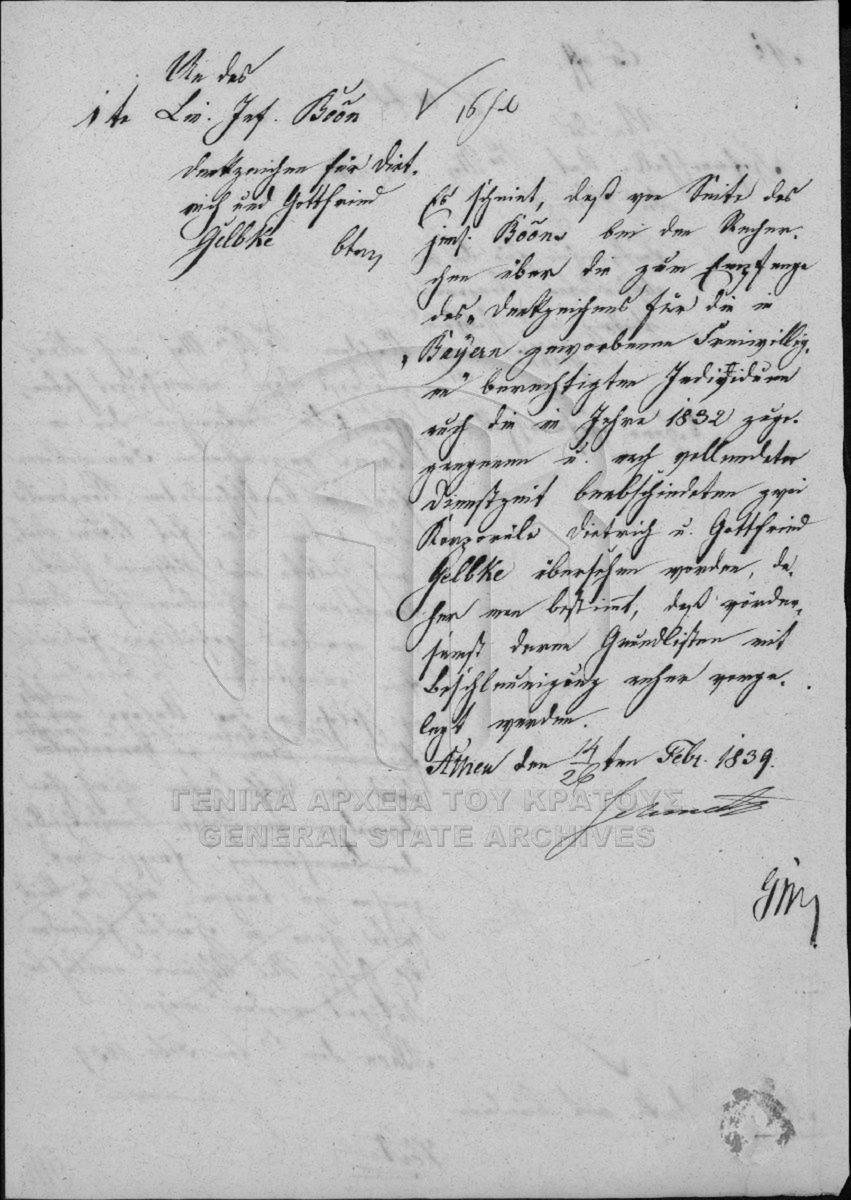 An das
1te Lin. Inf. Baôn
Denkzeichen für Diet-
rich und Gottfried
Gelbke
16/2
Es scheint, daß von Seite des
jens. Baôns bei den Recher-
chen über die zum Empfange
des „Denkzeichens für die in
Bayern geworbenen Freiwillig-
en" berechtigten Individuen
auch die im Jahre 1832 zuge-
gangenen u. nach vollendeter
Dienstzeit verabschiedeten zwei
Korporäle Dietrich u. Gottfried
Gelbke übersehen worden, da-
her man bestimmt, daß vörder-
samst deren Grundlisten mit
Beschleunigung anher vorge-
legt werden.
Athen den 14/26ten Febr. 1839.
ΓΕΝΙΚΑ ΑΡΧΕΙΑ ΤΟΥ ΚΡΑΤΟΥΣ
GENERAL STATE ARCHIVES